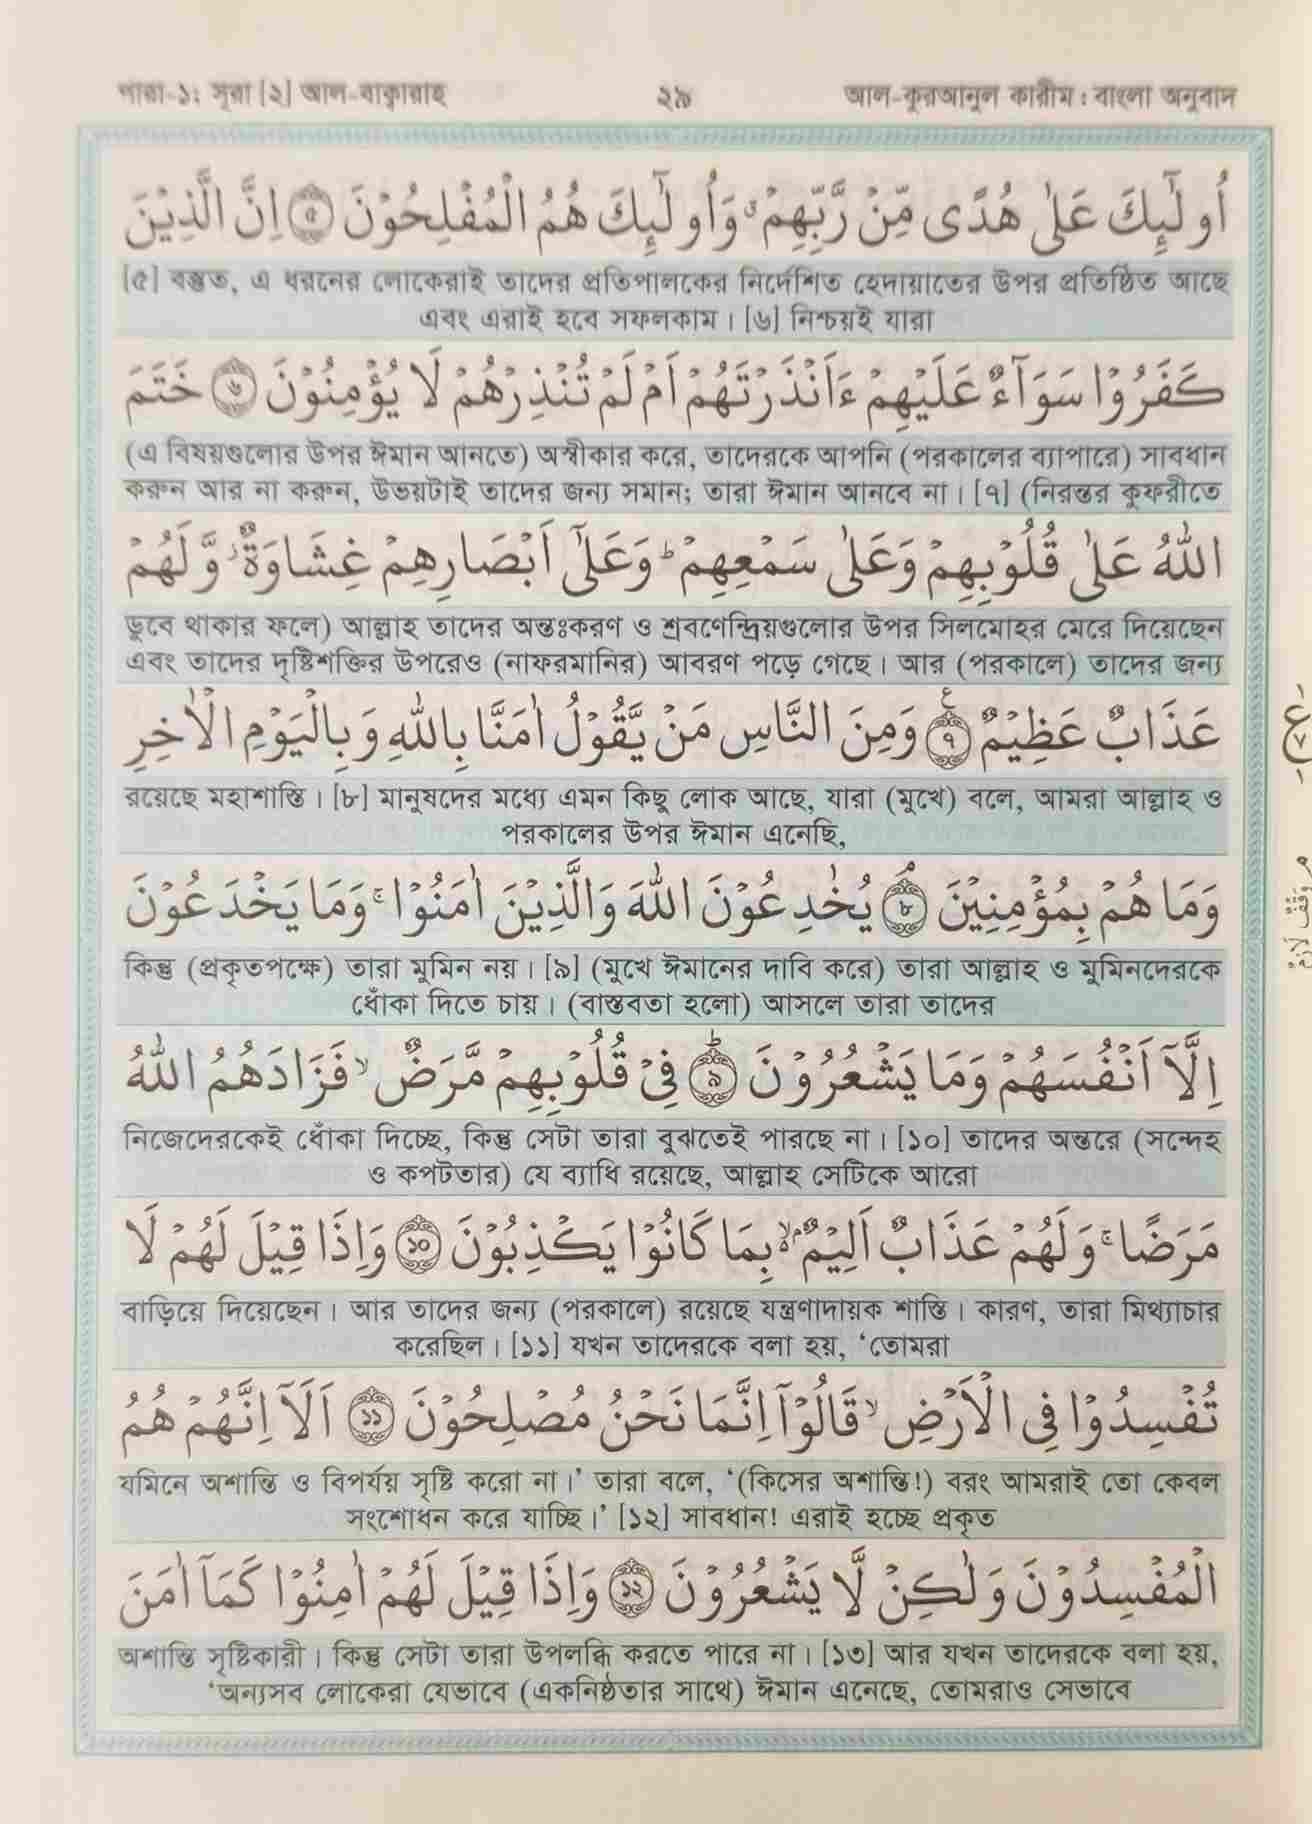 পারা-১: সূরা [২] আল-বাক্বারাহ ২৯ আল-কুরআনুল কারীম : বাংলা অনুবাদ
اُولٰٓئِكَ عَلٰى هُدًى مِّنْ رَّبِّهِمْ ۗ وَاُولٰٓئِكَ هُمُ الْمُفْلِحُوْنَ ۝٥ اِنَّ الَّذِيْنَ
[৫] বস্তুত, এ ধরনের লোকেরাই তাদের প্রতিপালকের নির্দেশিত হেদায়াতের উপর প্রতিষ্ঠিত আছে
এবং এরাই হবে সফলকাম। [৬] নিশ্চয়ই যারা
كَفَرُوْا سَوَآءٌ عَلَيْهِمْ ءَاَنْذَرْتَهُمْ اَمْ لَمْ تُنْذِرْهُمْ لَا يُؤْمِنُوْنَ ۝٦ خَتَمَ
(এ বিষয়গুলোর উপর ঈমান আনতে) অস্বীকার করে, তাদেরকে আপনি (পরকালের ব্যাপারে) সাবধান
করুন আর না করুন, উভয়টাই তাদের জন্য সমান; তারা ঈমান আনবে না। [৭] (নিরন্তর কুফরীতে
اللّٰهُ عَلٰى قُلُوْبِهِمْ وَعَلٰى سَمْعِهِمْ ؕ وَعَلٰٓى اَبْصَارِهِمْ غِشَاوَةٌ ؗ وَّلَهُمْ
ডুবে থাকার ফলে) আল্লাহ তাদের অন্তঃকরণ ও শ্রবণেন্দ্রিয়গুলোর উপর সিলমোহর মেরে দিয়েছেন
এবং তাদের দৃষ্টিশক্তির উপরেও (নাফরমানির) আবরণ পড়ে গেছে। আর (পরকালে) তাদের জন্য
عَذَابٌ عَظِيْمٌ ۝٧ ع وَمِنَ النَّاسِ مَنْ يَّقُوْلُ اٰمَنَّا بِاللّٰهِ وَبِالْيَوْمِ الْاٰخِرِ
রয়েছে মহাশাস্তি। [৮] মানুষদের মধ্যে এমন কিছু লোক আছে, যারা (মুখে) বলে, আমরা আল্লাহ ও
পরকালের উপর ঈমান এনেছি,
وَمَا هُمْ بِمُؤْمِنِيْنَ ۝٨ۘ يُخٰدِعُوْنَ اللّٰهَ وَالَّذِيْنَ اٰمَنُوْا ۚ وَمَا يَخْدَعُوْنَ
কিন্তু (প্রকৃতপক্ষে) তারা মুমিন নয়। [৯] (মুখে ঈমানের দাবি করে) তারা আল্লাহ ও মুমিনদেরকে
ধোঁকা দিতে চায়। (বাস্তবতা হলো) আসলে তারা তাদের
اِلَّآ اَنْفُسَهُمْ وَمَا يَشْعُرُوْنَ ۝٩ؕ فِيْ قُلُوْبِهِمْ مَّرَضٌ ۙ فَزَادَهُمُ اللّٰهُ
নিজেদেরকেই ধোঁকা দিচ্ছে, কিন্তু সেটা তারা বুঝতেই পারছে না। [১০] তাদের অন্তরে (সন্দেহ
ও কপটতার) যে ব্যাধি রয়েছে, আল্লাহ সেটিকে আরো
مَرَضًا ۚ وَلَهُمْ عَذَابٌ اَلِيْمٌۢ ۙ بِمَا كَانُوْا يَكْذِبُوْنَ ۝١٠ وَاِذَا قِيْلَ لَهُمْ لَا
বাড়িয়ে দিয়েছেন। আর তাদের জন্য (পরকালে) রয়েছে যন্ত্রণাদায়ক শাস্তি। কারণ, তারা মিথ্যাচার
করেছিল। [১১] যখন তাদেরকে বলা হয়, ‘তোমরা
تُفْسِدُوْا فِي الْاَرْضِ ۙ قَالُوْٓا اِنَّمَا نَحْنُ مُصْلِحُوْنَ ۝١١ اَلَآ اِنَّهُمْ هُمُ
যমিনে অশান্তি ও বিপর্যয় সৃষ্টি করো না।’ তারা বলে, ‘(কিসের অশান্তি!) বরং আমরাই তো কেবল
সংশোধন করে যাচ্ছি।’ [১২] সাবধান! এরাই হচ্ছে প্রকৃত
الْمُفْسِدُوْنَ وَلٰكِنْ لَّا يَشْعُرُوْنَ ۝١٢ وَاِذَا قِيْلَ لَهُمْ اٰمِنُوْا كَمَآ اٰمَنَ
অশান্তি সৃষ্টিকারী। কিন্তু সেটা তারা উপলব্ধি করতে পারে না। [১৩] আর যখন তাদেরকে বলা হয়,
‘অন্যসব লোকেরা যেভাবে (একনিষ্ঠতার সাথে) ঈমান এনেছে, তোমরাও সেভাবে